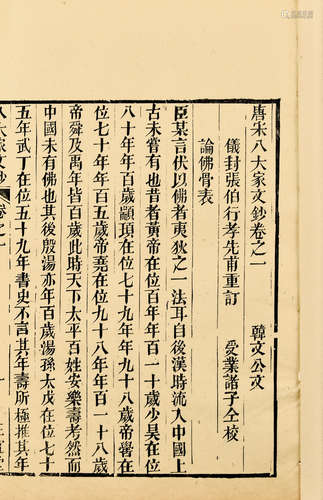 唐宋八大家文鈔卷之一 韓文公文
儀封張伯行孝先甫重訂 受業諸子仝校
論佛骨表
臣某言伏以佛者夷狄之一法耳自後漢時流入中國上
古未嘗有也昔者黃帝在位百年年百一十歲少昊在位
八十年年百歲顓頊在位七十九年年九十八歲帝嚳在
位七十年年百五歲帝堯在位九十八年年百一十八歲
帝舜及禹年皆百歲此時天下太平百姓安樂壽考然而
中國未有佛也其後殷湯亦年百歲湯孫太戊在位七十
五年武丁在位五十九年書史不言其年壽所極推其年
八大家文鈔 卷之一 一